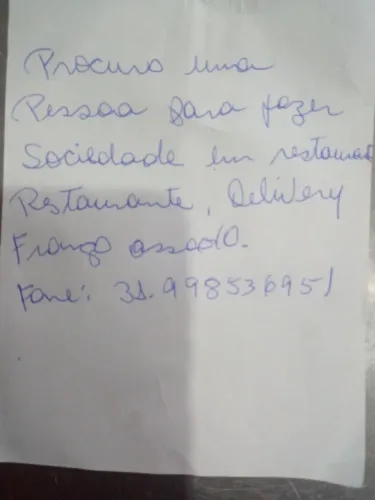 Procuro uma
Pessoa para fazer
Sociedade em restauran
Restaurante, Delivery
Frango assado.
Fone: 31.998536951